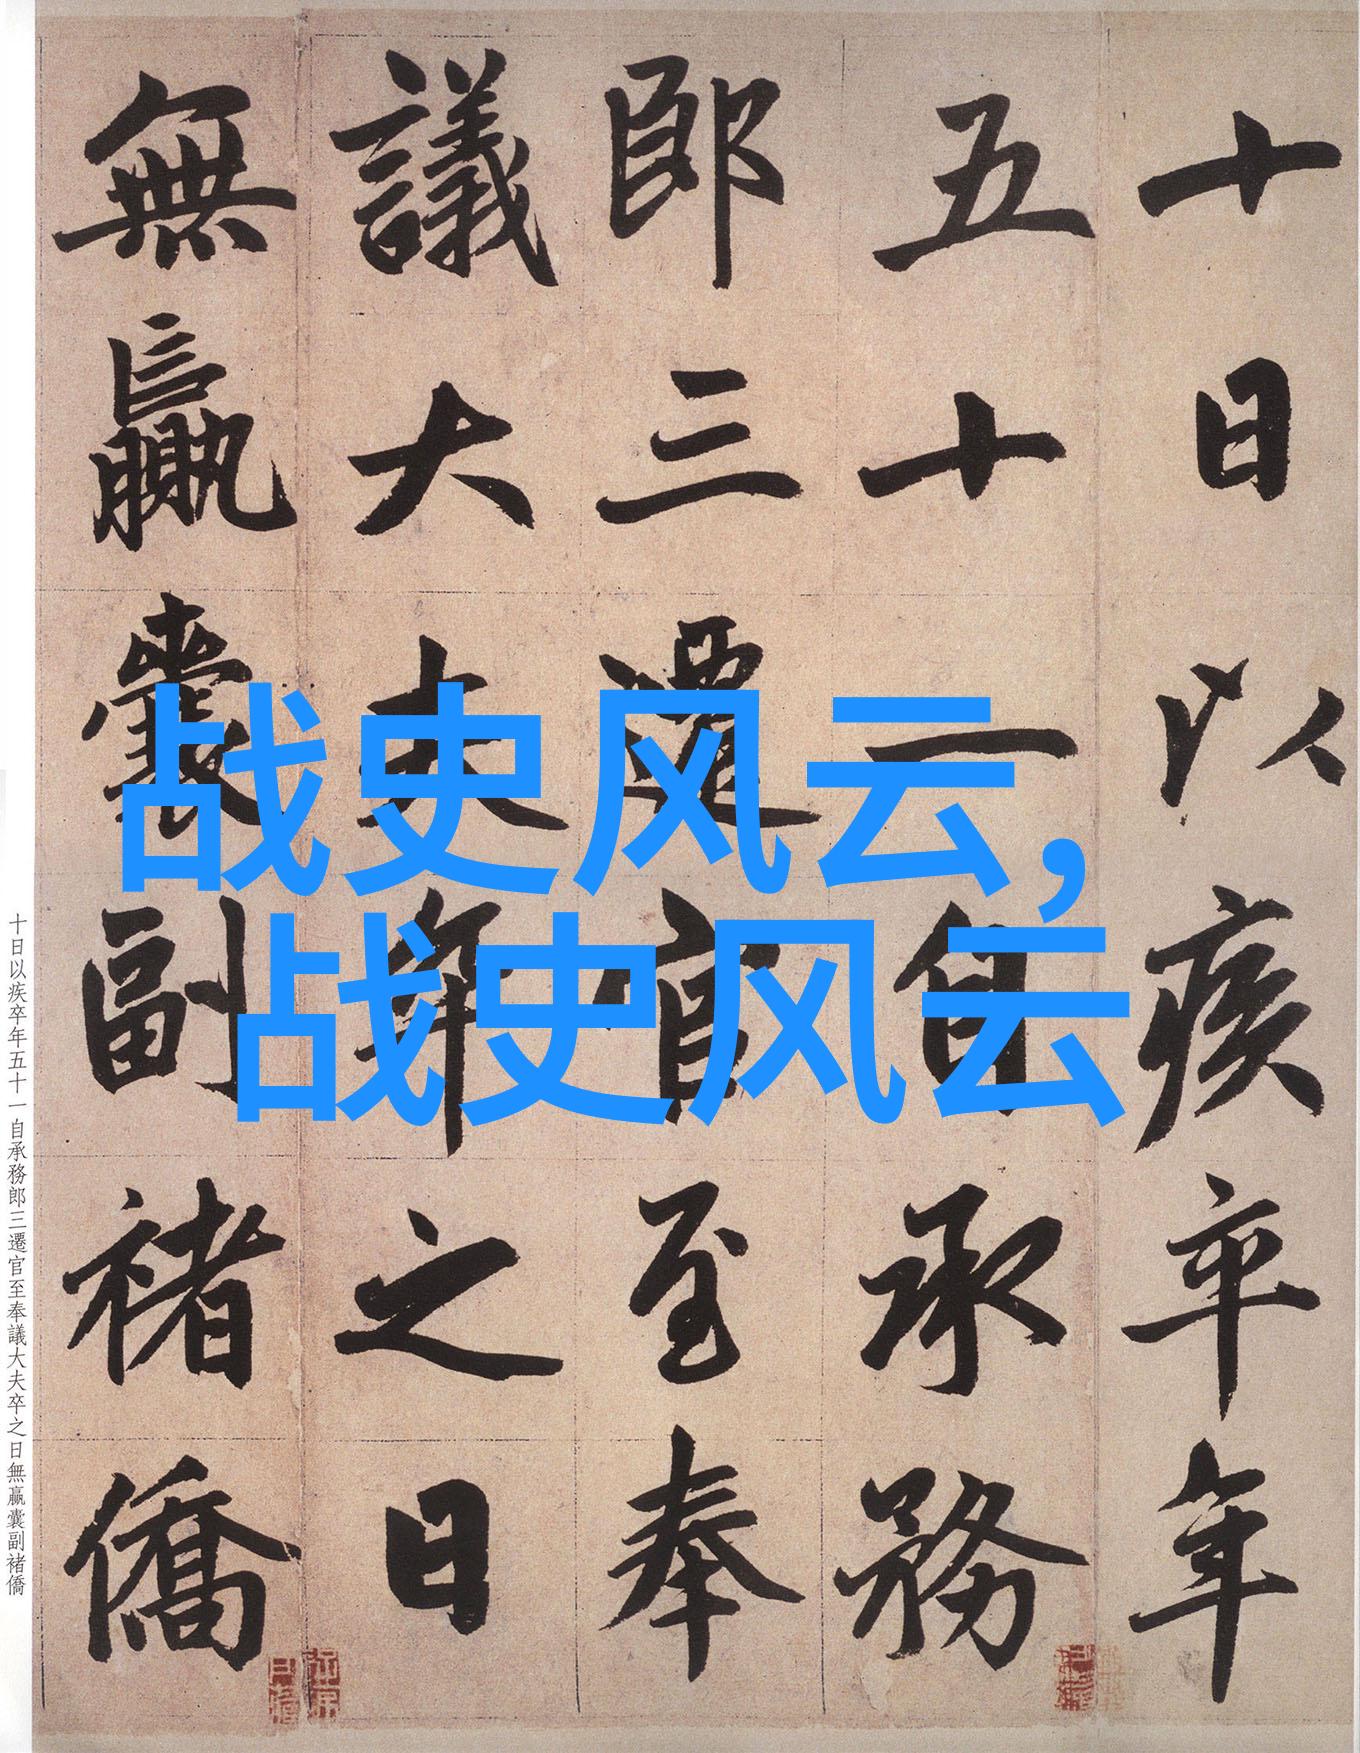 十日以疾卒年
五十一自承務
郎三遷官至奉
議大夫卒之日
無贏囊副褚僑
战史风云，
战史风云
十日以疾卒年五十一自承務郎三遷官至奉議大夫卒之日無贏囊副褚僑